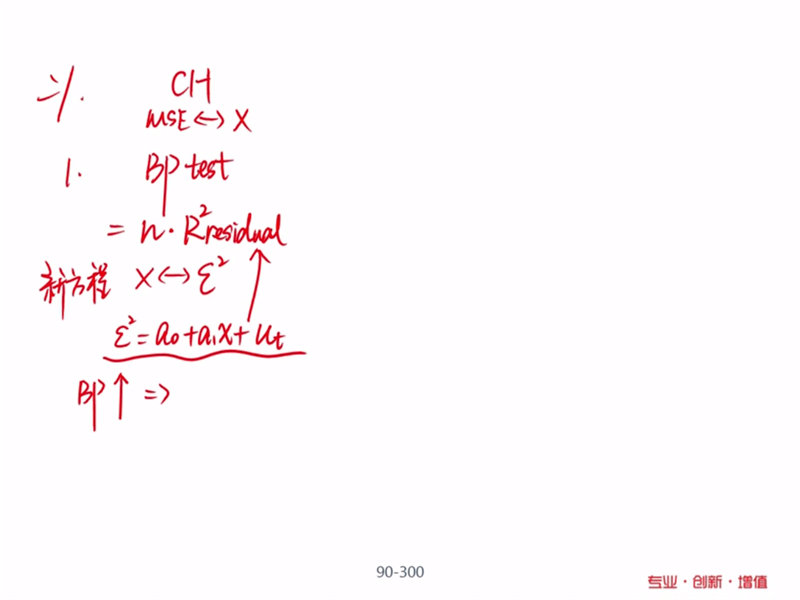 二、 CH
MSE↔X
1. BP test
= n·R²residual
新方程 X↔ε²
ε²=a₀+a₁X+ut
BP↑ =>
90-300
专业·创新·增值